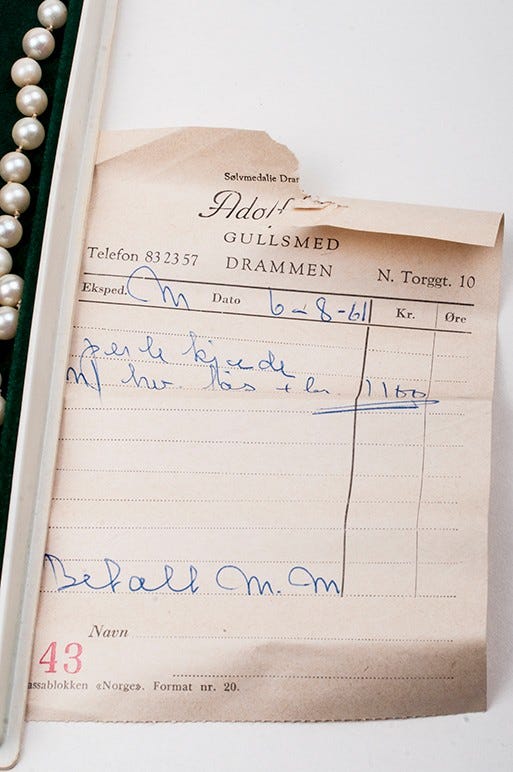 Sølvmedalie Dram
Adolf
GULLSMED
Telefon 832357 DRAMMEN N. Torggt. 10
Eksped. M Dato 6-8-61 Kr. Øre
perle kjede
m/ hv. lås + br. 1100
Betalt M. M
Navn
43
assablokken «Norge». Format nr. 20.